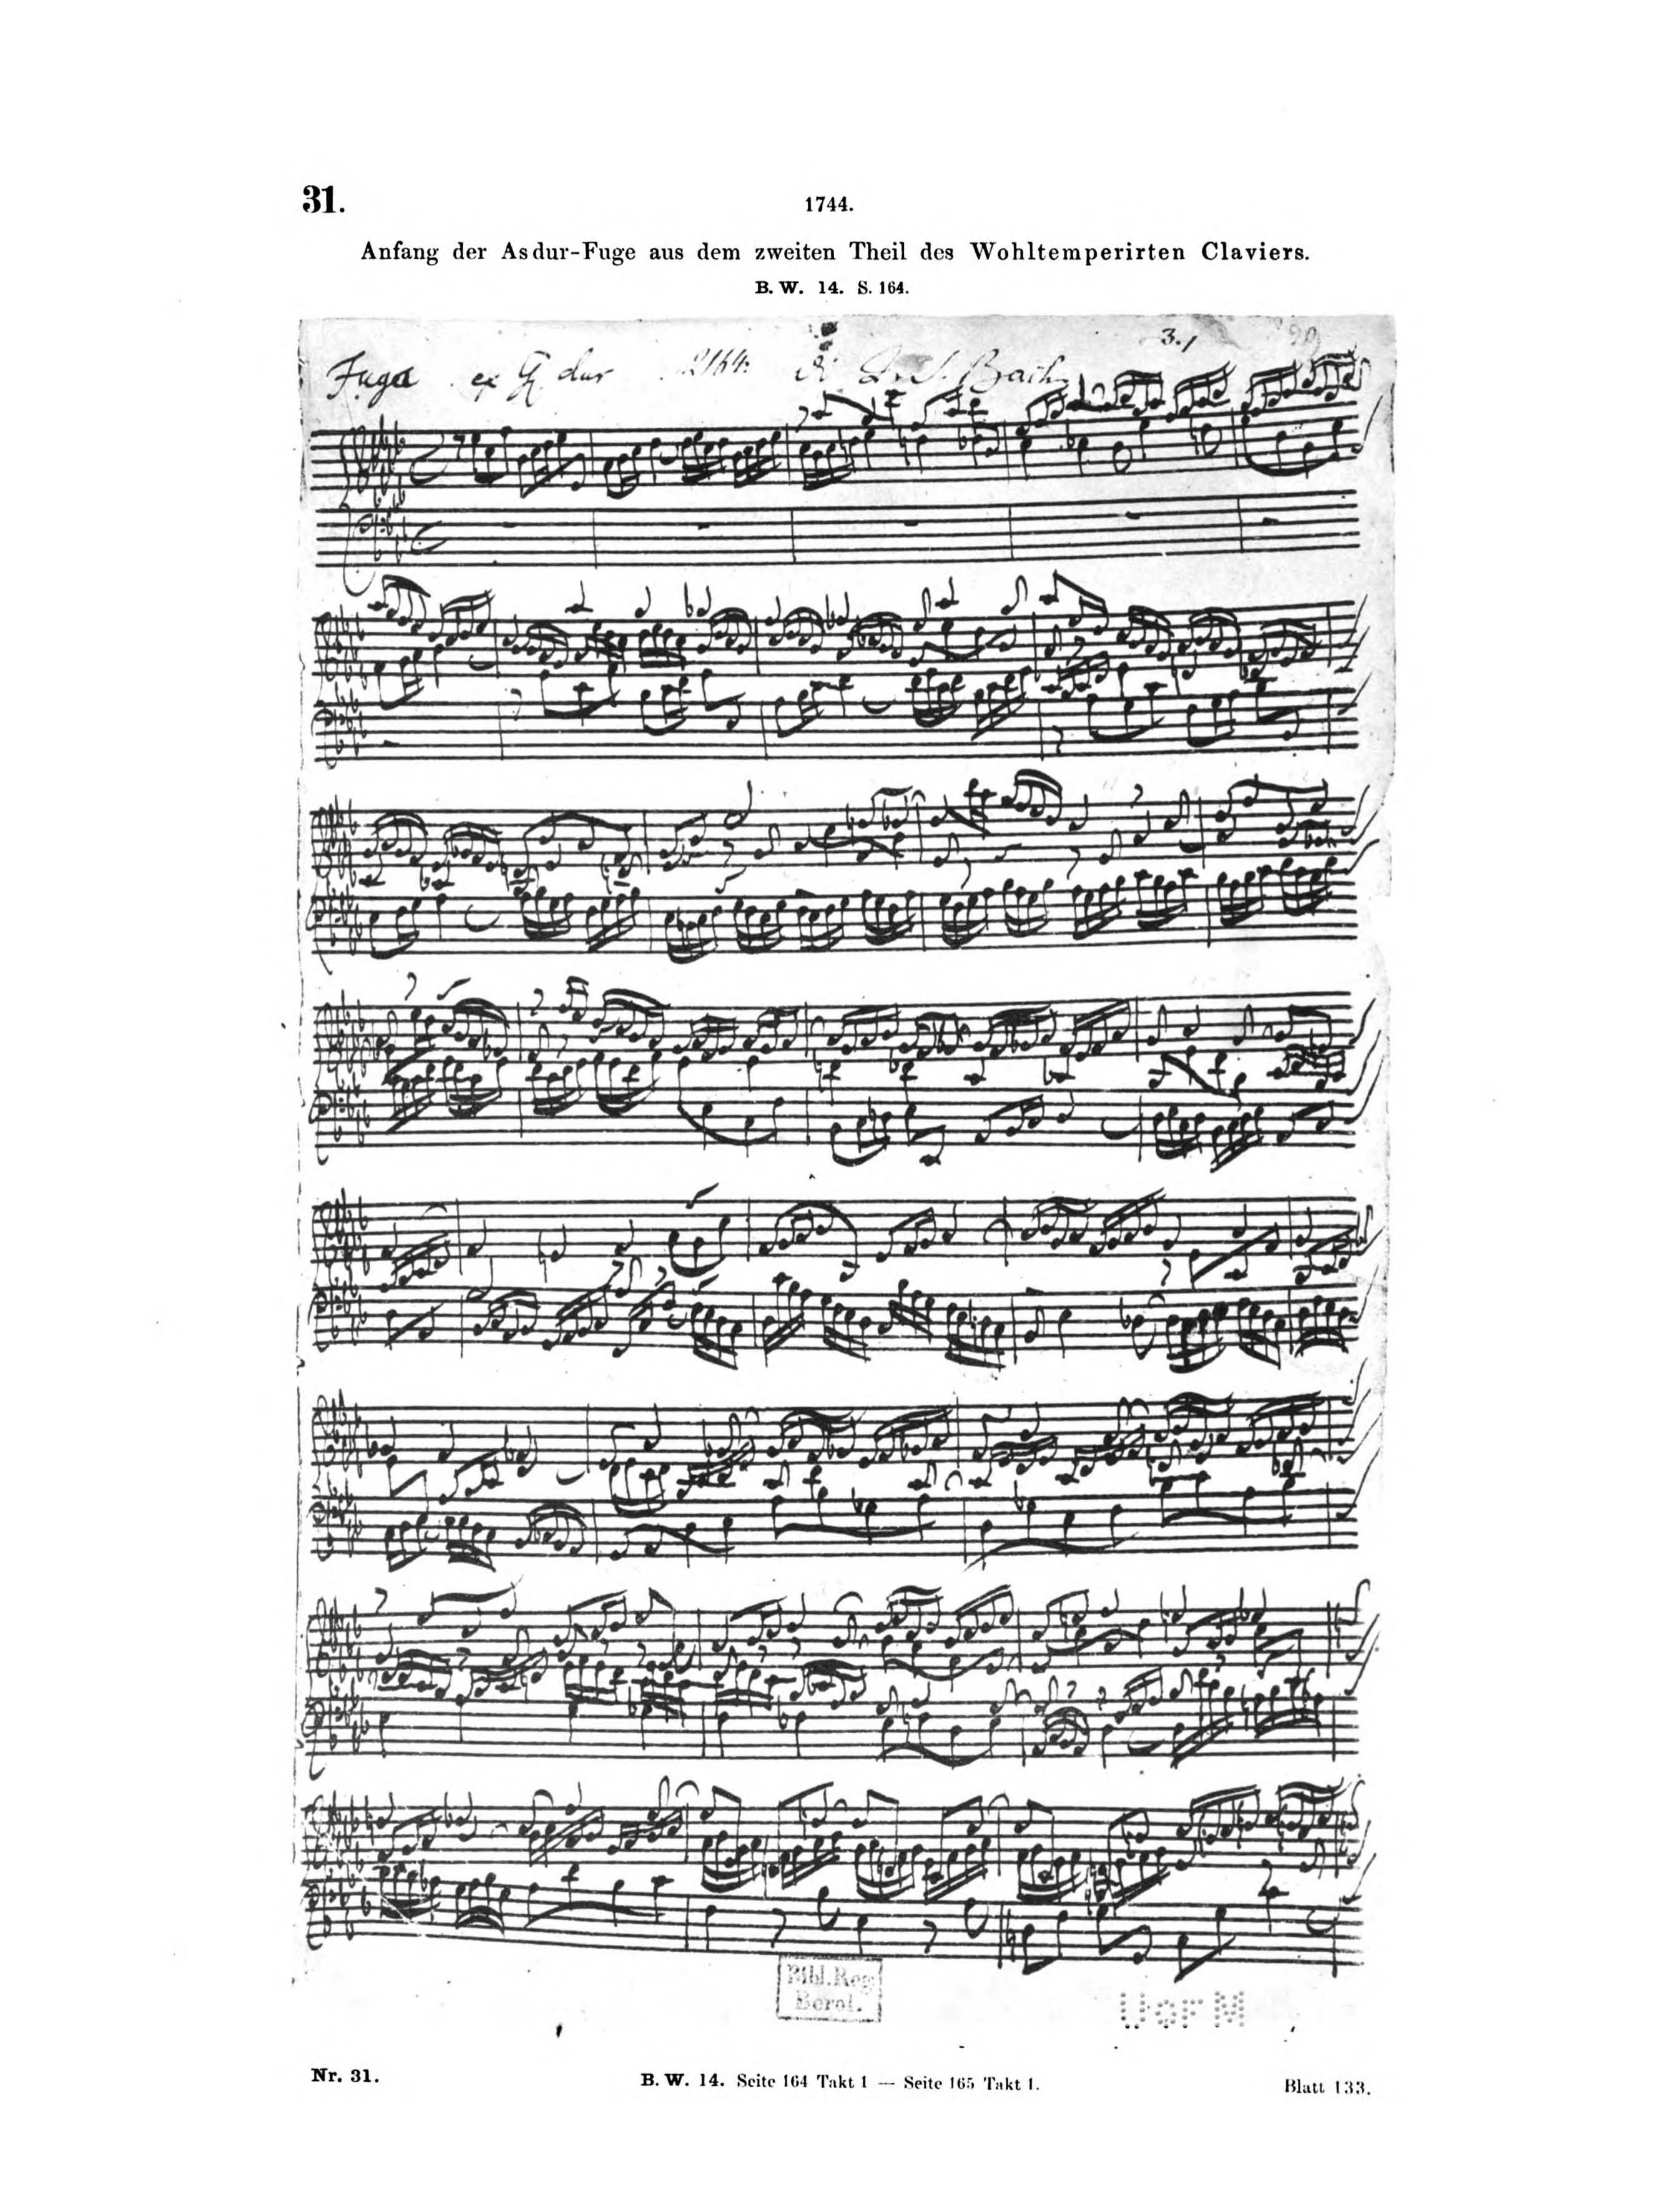 31.
1744.
Anfang der Asdur-Fuge aus dem zweiten Theil des Wohltemperirten Claviers.
B. W. 14. S. 164.
3.
Fuga ex Gis dur di J. S. Bach
Bibl. Reg.
Berol.
U OF M
Nr. 31.
B. W. 14. Seite 164 Takt 1 — Seite 165 Takt 1.
Blatt 133.